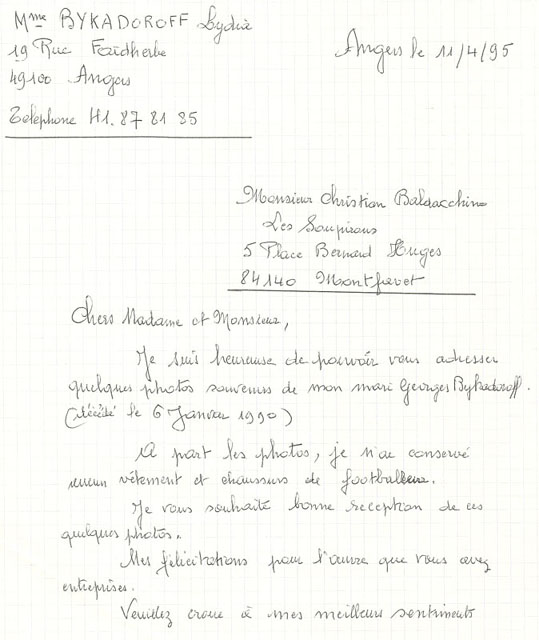 Mme BYKADOROFF Lydia
19 Rue Faidherbe
49100 Angers
Téléphone 41. 87 81 35
Angers le 11/4/95
Monsieur Christian Baldacchino
Les Soupirans
5 Place Bernard Huges
84140 Montfavet
Chers Madame et Monsieur,
Je suis heureuse de pouvoir vous adresser
quelques photos souvenirs de mon mari Georges Bykadoroff.
(décédé le 6 Janvier 1990)
A part les photos, je n'ai conservé
aucun vêtement et chaussures de footballeur.
Je vous souhaite bonne reception de ces
quelques photos.
Mes félicitations pour l'œuvre que vous avez
entreprises.
Veuillez croire à mes meilleurs sentiments